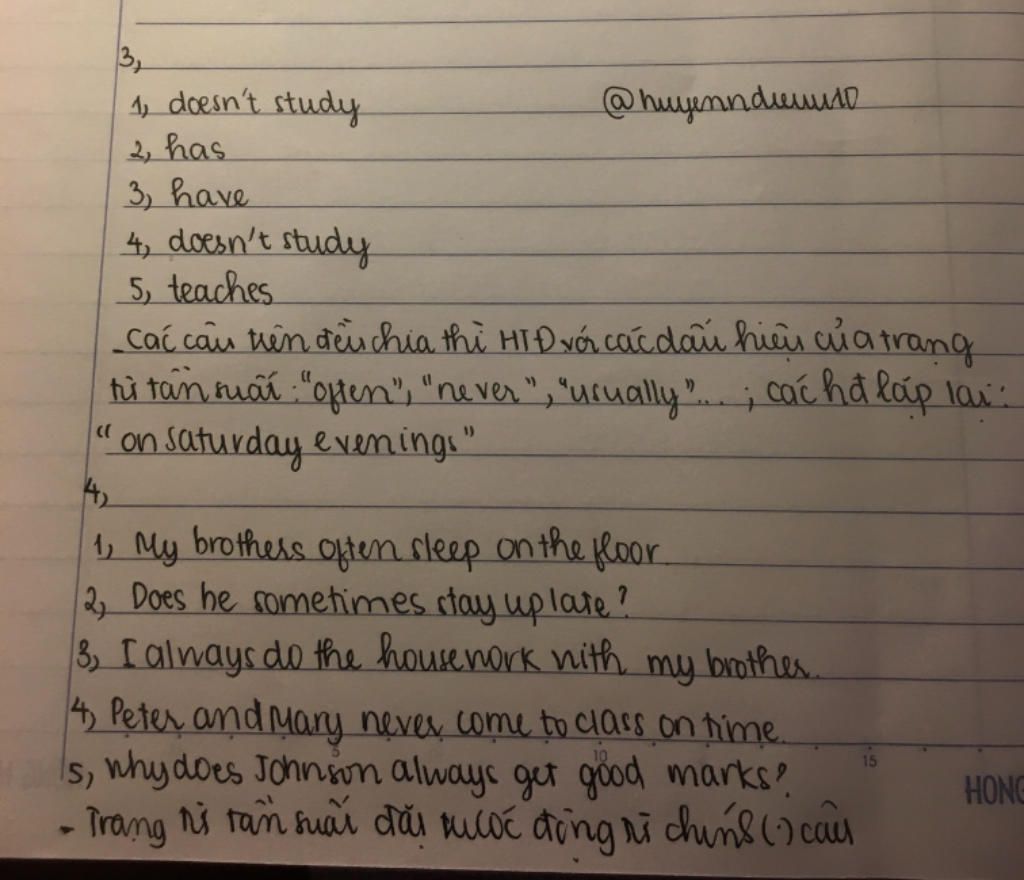 3,
1, doesn't study @huyenndieuuu10
2, has
3, have
4, doesn't study
5, teaches
- Các câu trên đều chia thì HTĐ với các dấu hiệu của trạng
từ tần suất : "often", "never", "usually"... ; các hđ lặp lại :
"on saturday evenings"
4,
1, My brothers often sleep on the floor.
2, Does he sometimes stay up late?
3, I always do the housework with my brother.
4, Peter and Mary never come to class on time.
5 10 15
5, Why does Johnson always get good marks?
HONG
- Trạng từ tần suất đặt trước động từ chính (.) câu